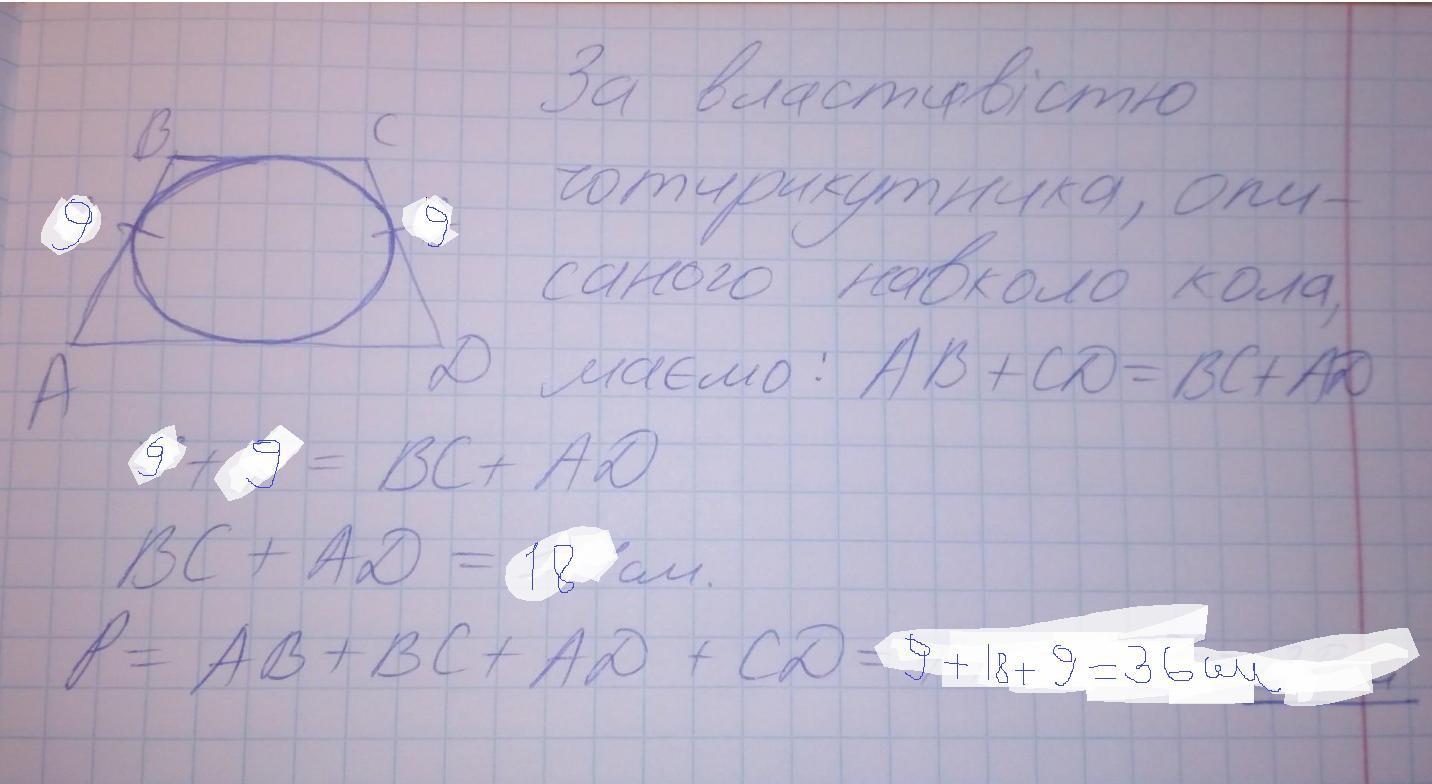 За властивістю
B C
чотирикутника, опи-
9 9
саного навколо кола,
A D
маємо: AB + CD = BC + AD
9 + 9 = BC + AD
BC + AD = 18 см.
P = AB + BC + AD + CD = 9 + 18 + 9 = 36 см